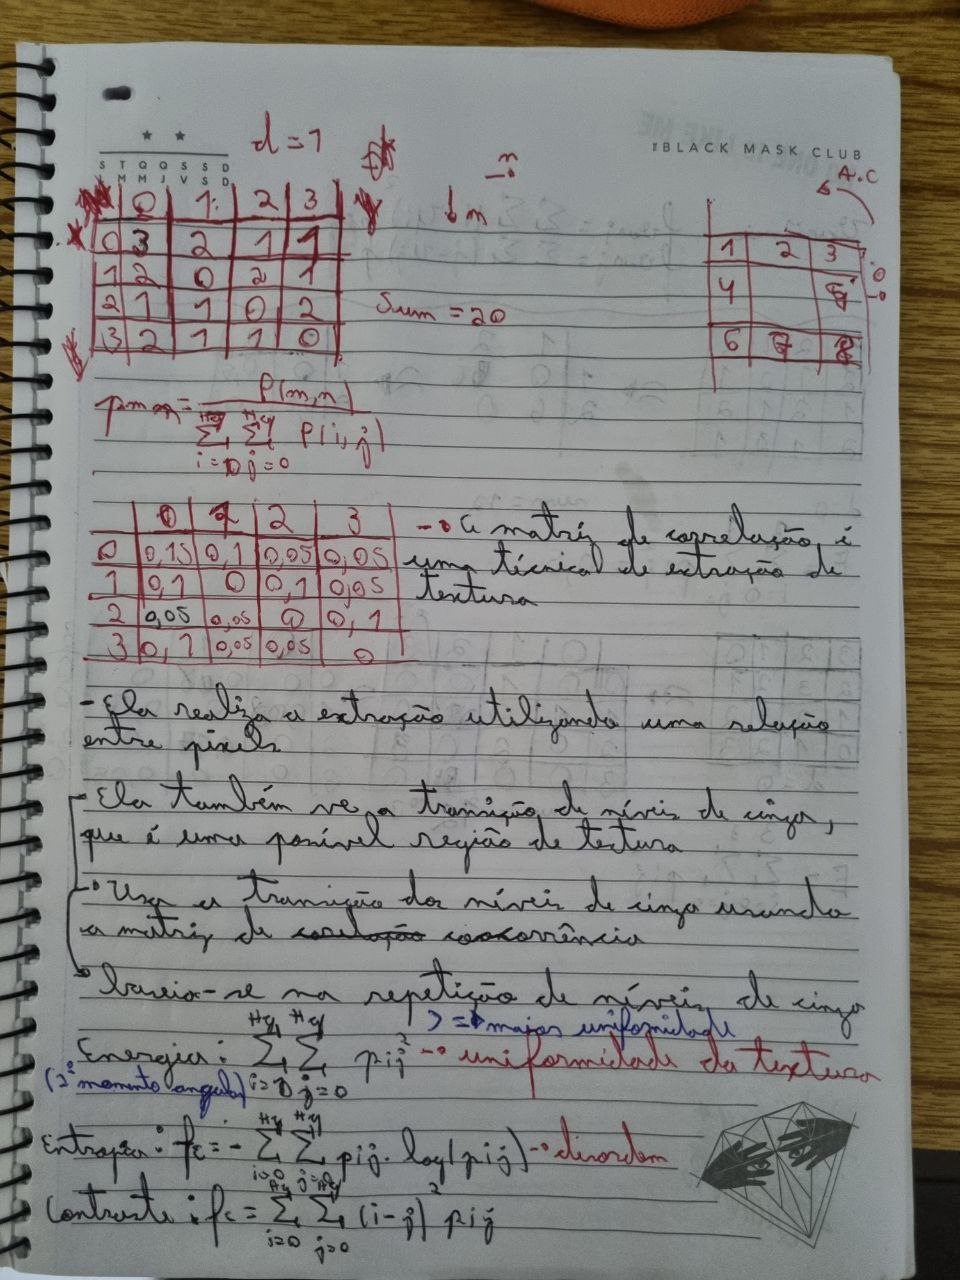 ★ ★
S T Q Q S S D
M M J V S D
d = 1
THE BLACK MASK CLUB
n
↓ m
A.C
0 1 2 3
0 3 2 1 1
1 2 0 2 1
2 1 1 0 2
3 2 1 1 0
Sum = 20
1 2 3
4 5
6 7 8
0
pmn = P(m,n)
Σ Σ P(i,j)
i=0 j=0
0 1 2 3
0 0,15 0,1 0,05 0,05
1 0,1 0 0,1 0,05
2 0,05 0,05 0 0,1
3 0,1 0,05 0,05 0
→ a matriz de correlação é
uma técnica de extração de
textura
- Ela realiza a extração utilizando uma relação
entre pixels
- Ela também ve a transição de níveis de cinza,
que é uma possível região de textura
- Usa a transição dos níveis de cinza usando
a matriz de coocorrência
baseia-se na repetição de níveis de cinza
> => maior uniformidade
Energia: Σ Σ pij² → uniformidade da textura
(2º momento angular) i=0 j=0
Entropia: fe = - Σ Σ pij . log(pij) → desordem
i=0 j=0
Contraste: fc = Σ Σ (i-j)² pij
i=0 j=0